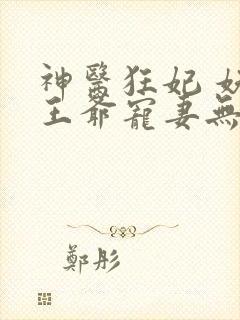 神醫狂妃
王爺寵妻無
鄭彤